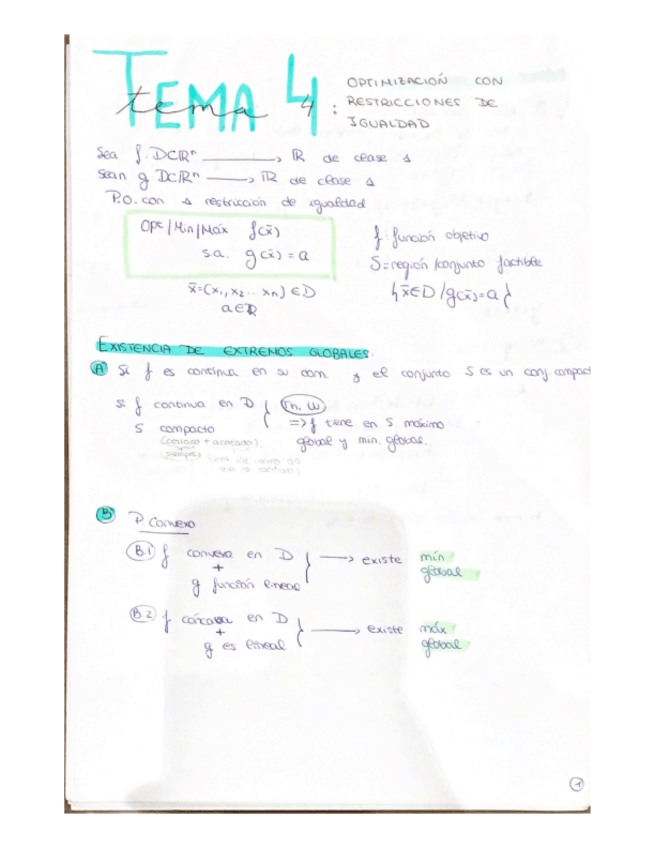 TEMA 4
tema 4 : OPTIMIZACIÓN CON
RESTRICCIONES DE
IGUALDAD
Sea f: D⊂ℝⁿ ⟶ ℝ de clase 1
Sean g D⊂ℝⁿ ⟶ ℝ de clase 1
P.O. con 1 restricción de igualdad
Opt/Min/Máx f(x̄)
s.a. g(x̄) = a
f: función objetivo
S=región/conjunto factible
{x̄∈D/g(x̄)=a}
x̄=(x₁, x₂... xₙ)∈D
a∈ℝ
EXISTENCIA DE EXTREMOS GLOBALES
A Si f es continua en su dom. y el conjunto S es un conj compact
si f continua en D } Th. W
S compacto => f tiene en S máximo
(cerrado + acotado) global y min. global.
siempre
B P. Convexo
B.1 f convexa en D
+
g función lineal
} ⟶ existe mín
global
B.2 f cóncava en D
+
g es lineal
} ⟶ existe máx
global
1